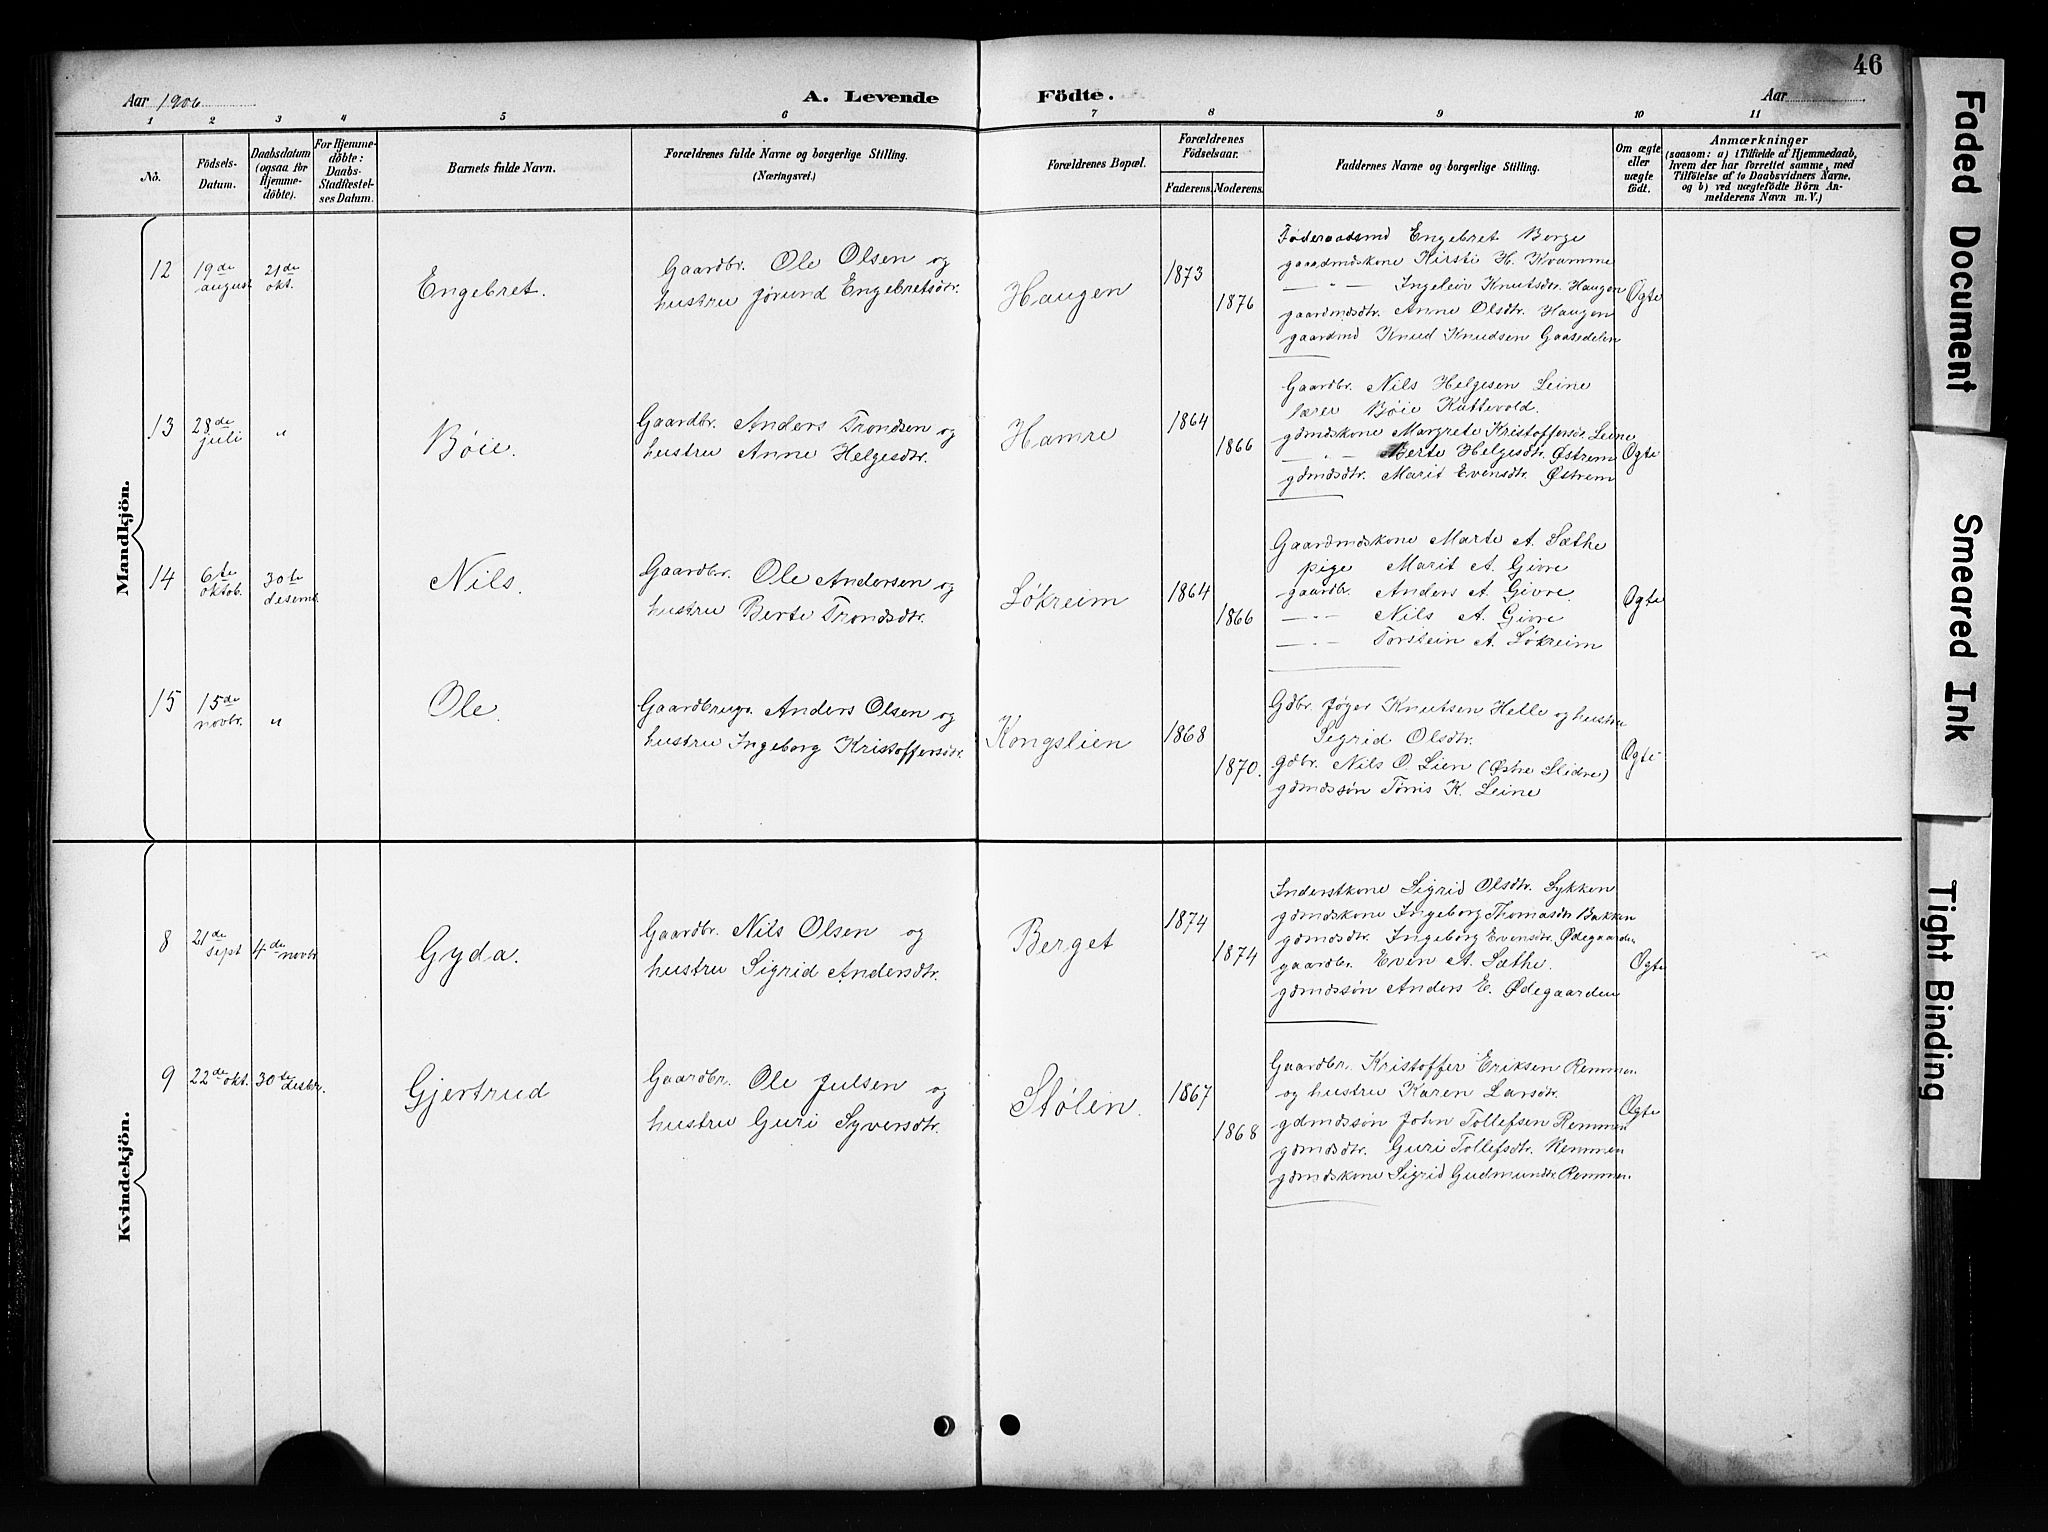 46
Aar 1906
A. Levende Födte.
Aar
1 2 3 4 5 6 7 8 9 10 11
No.
Födsels-Datum.
Daabsdatum (ogsaa for Hjemme-döbte).
For Hjemme-döbte: Daabs-Stadfæstel-ses Datum.
Barnets fulde Navn.
Forældrenes fulde Navne og borgerlige Stilling.
(Næringsvei.)
Forældrenes Bopæl.
Forældrenes Födselsaar.
Faderens. Moderens.
Faddernes Navne og borgerlige Stilling.
Om ægte eller uægte födt.
Anmærkninger
(saasom: a) i Tilfælde af Hjemmedaab, hvem der har forrettet samme, med Tilföielse af to Daabsvidners Navne, og b) ved uægtefödte Börn An-melderens Navn m. V.)
Mandkjön.
12
19de august
21de okt.
Engebret.
Gaardbr. Ole Olsen og
hustru Jørund Engebretsdtr.
Haugen
1873
1876
Føderaadsmd Engebret Berge
gaardmdskone Kirsti H. Kvamme
— " — Ingeleiv Knutsdtr. Haugen
gaardmdsdtr. Anne Olsdtr. Haugen
gaardmd Knud Knudsen Gaasedelen
Ægte
13
28de juli
"
Bøie.
Gaardbr. Anders Trondsen og
hustru Anne Helgesdtr.
Hamre
1864
1866
Gaardbr. Nils Helgesen Leine
lærer Bøie Kattevold.
gdmdskone Margrete Kristoffersdr. Leine
— " — Berte Helgesdtr. Østrem
gdmdsdtr. Marit Evensdtr. Østrem
Ægte
14
6te oktob.
30te desemb.
Nils.
Gaardbr. Ole Andersen og
hustru Berte Trondsdtr.
Løkreim
1864
1866
Gaardmdskone Marte A. Sæthe
pige Marit A. Givre
gaardbr. Anders A. Givre.
— " — Nils A. Givre
— " — Torstein A. Løkreim
Ægte
15
15de novbr.
"
Ole.
Gaardbrugr. Anders Olsen og
hustru Ingeborg Kristoffersdtr.
Kongslien
1868
1870.
Gdbr. Jøger Knutsen Helle og hustru
Sigrid Olsdtr.
gdbr. Nils O. Lien (Østre Slidre)
gdmdssøn Tørris K. Leine
Ægte
Kvindekjön.
8
21de sept
4de novbr
Gyda.
Gaardbr. Nils Olsen og
hustru Sigrid Andersdtr.
Berget
1874
1874
Inderstkone Sigrid Olsdtr. Lykken
gdmdskone Ingeborg Thomasdtr Bakken
gdmdsdtr. Ingeborg Evensdtr. Ødegaarden
gaardbr. Even A. Sæthe.
gdmdssøn Anders E. Ødegaarden
Ægte
9
22de okt.
30te desbr.
Gjertrud
Gaardbr. Ole Julsen og
hustru Guri Syversdtr.
Stølen.
1867
1868
Gaardbr. Kristoffer Eriksen Remmen
og hustru Karen Larsdtr.
gdmdssøn John Tollefsen Remmen
gdmdsdtr. Guri Tollefsdtr. Remmen
gdmdskone Sigrid Gudmundsdtr. Remmen.
Ægte
Faded Document
Smeared Ink
Tight Binding